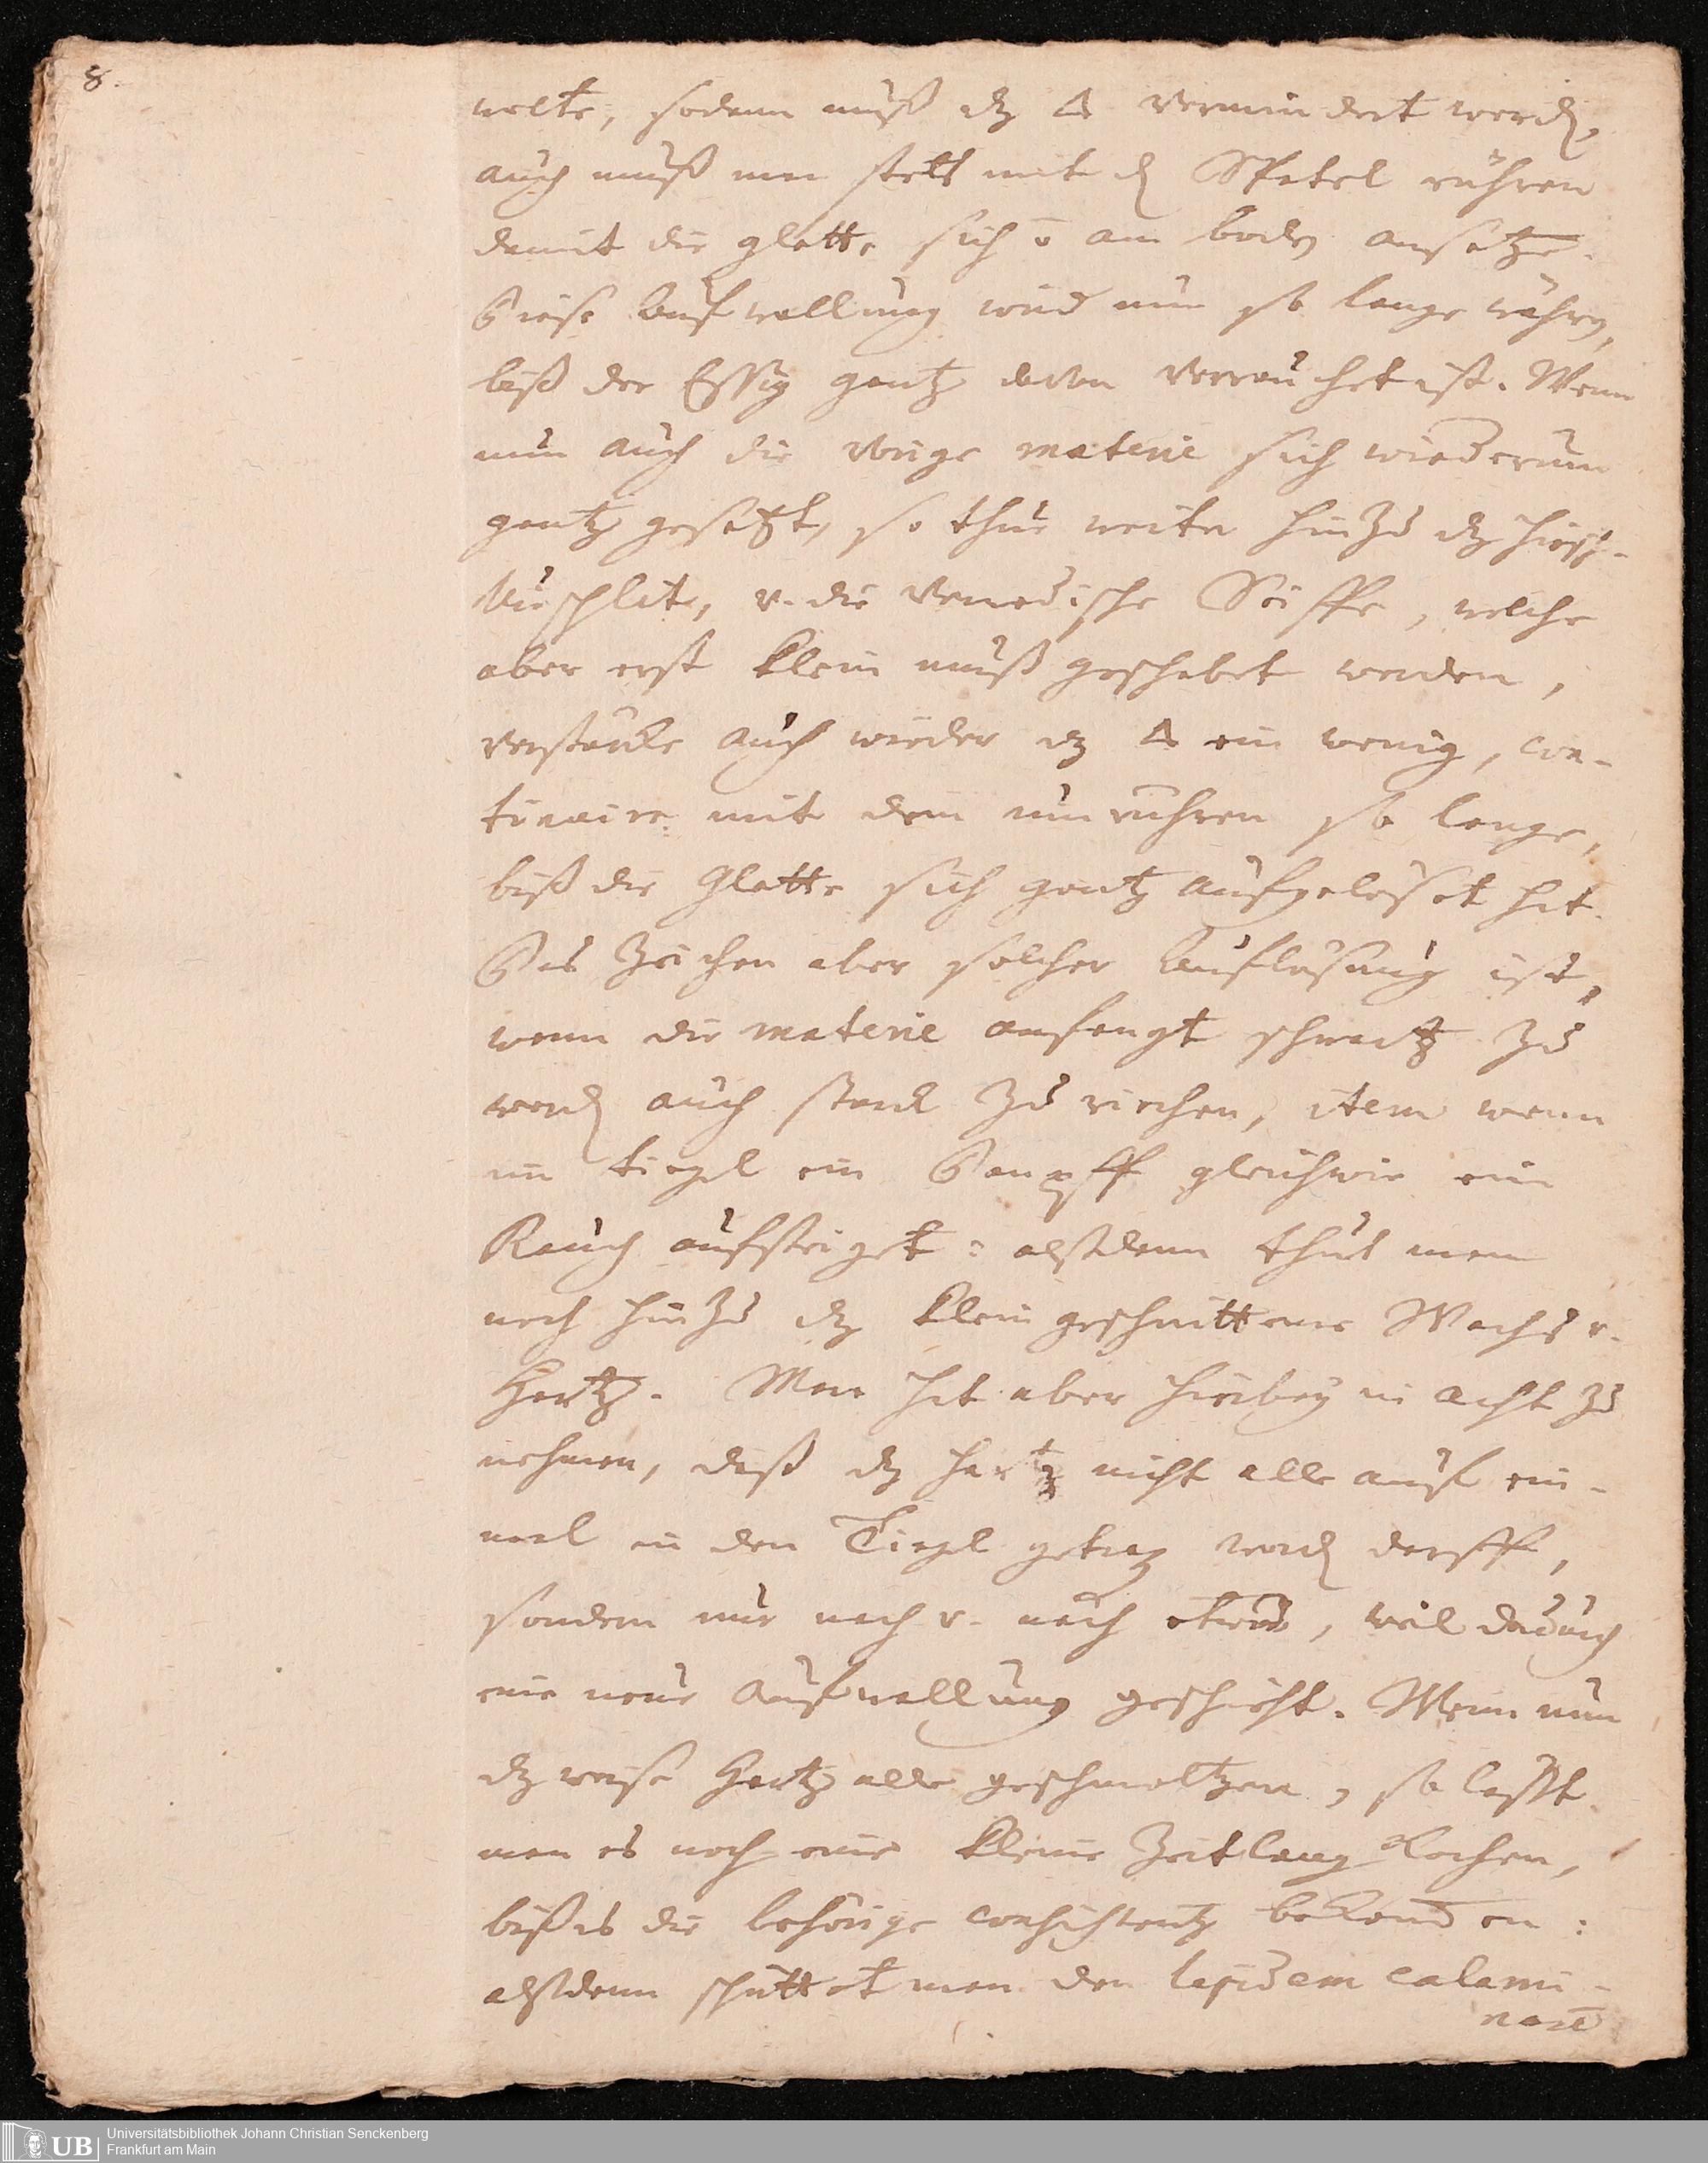 8.
wolte, sodann muß dz 🜂 vermindert werdẽ,
auch muß man stets mit dẽ Spatel rühren
damit die glette sich ō am bodẽ ansetze.
Diese Aufwallung wird nun so lange währẽ,
biß der Essig gantz davon verrauchet ist. Wenn
nun auch die übrige materie sich wiederum
gantz gesetzt, so thue weiter hinzu dz Hirsch-
Unschlit, u. die Venedische Seiffe, welche
aber erst klein muß geschabet werden,
verstärcke auch wieder dz 🜂 ein wenig, con-
tinuire mit dem umrühren so lange,
biß die Glette sich gantz aufgelöset hat.
Das Zeichen aber solcher Auflösung ist,
wenn die materie anfangt schwartz zu
werdẽ auch starck zu riechen, item wenn
im tiegel ein Dampff gleichwie ein
Rauch aufsteiget: alßdann thut man
noch hinzu dz klein geschnittene Wachs u.
Hartz. Man hat aber hierbey in acht zu
nehmen, daß dz Hartz nicht alle auf ein-
mal in den Tiegel getragẽ werdẽ darff,
sondern nur nach u. nach etwas, weil dadurch
eine neue Aufwallung geschieht. Wenn nun
dz weise Hartz alle geschmoltzen, so lässt
man es noch eine kleine Zeitlang kochen,
biß es die behörige consistentz bekommen:
alßdann schüttet man den lapidem calami-
narē
Universitätsbibliothek Johann Christian Senckenberg
Frankfurt am Main
UB